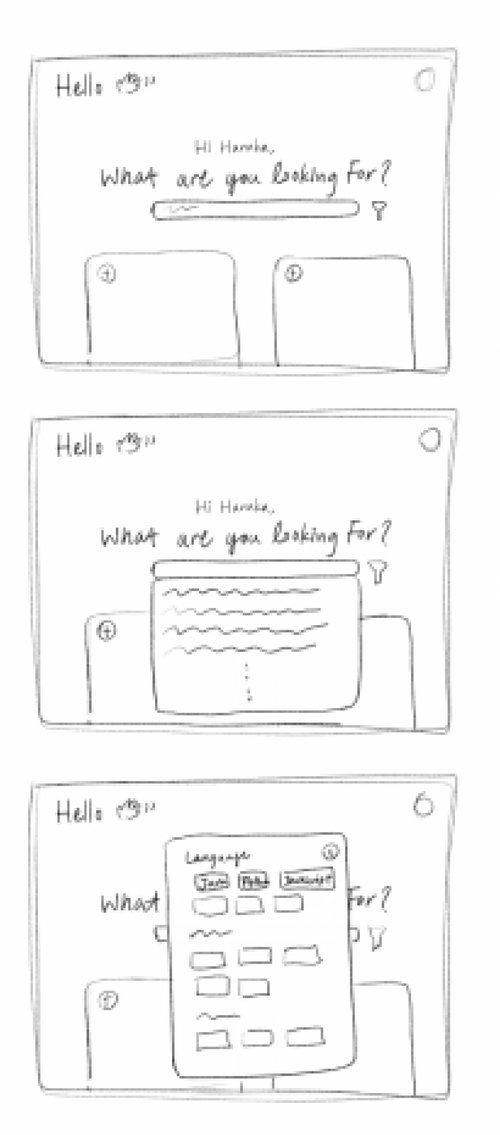 Hello
Hi Haruka,
What are you looking for?
Hello
Hi Haruka,
What are you looking for?
Hello
Language
Java
JavaScript
What
For?